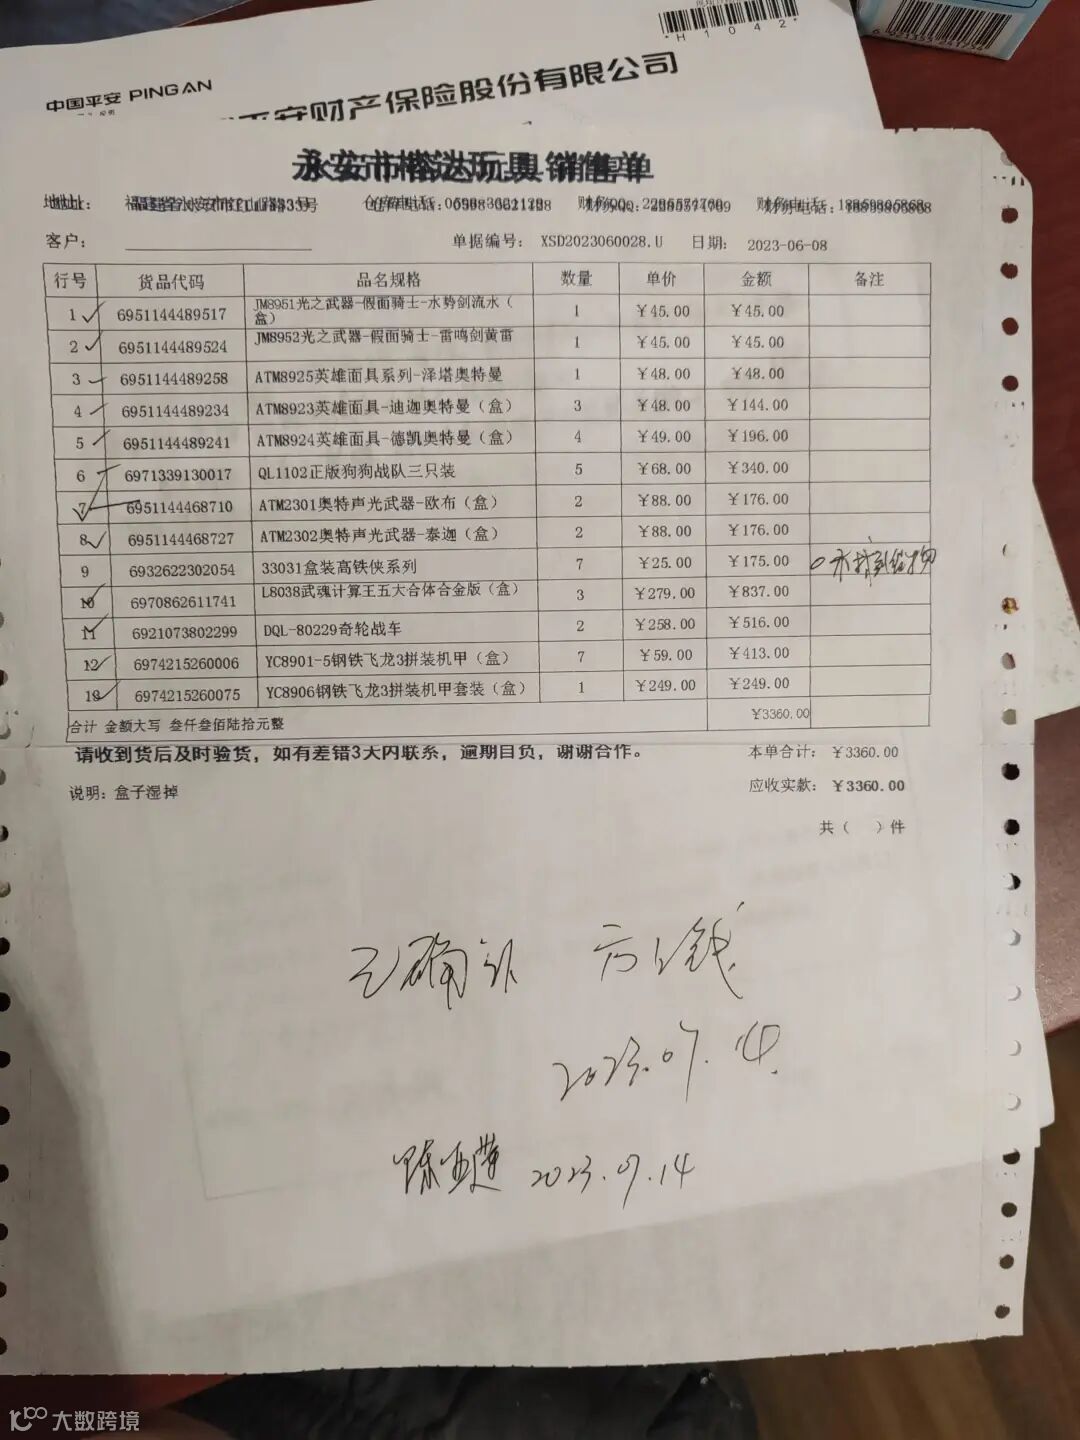 *H1042*
6921355241736
中国平安 PING AN
平安财产保险股份有限公司
永安市榕达玩具 销售单
地址： 福建省永安市 号 仓库电话：0598-3621128 财务QQ： 财务电话：
客户： 单据编号： XSD2023060028.U 日期： 2023-06-08
行号 货品代码 品名规格 数量 单价 金额 备注
1 6951144489517 JM8951光之武器-假面骑士-水势剑流水（盒） 1 ￥45.00 ￥45.00
2 6951144489524 JM8952光之武器-假面骑士-雷鸣剑黄雷 1 ￥45.00 ￥45.00
3 6951144489258 ATM8925英雄面具系列-泽塔奥特曼 1 ￥48.00 ￥48.00
4 6951144489234 ATM8923英雄面具-迪迦奥特曼（盒） 3 ￥48.00 ￥144.00
5 6951144489241 ATM8924英雄面具-德凯奥特曼（盒） 4 ￥49.00 ￥196.00
6 6971339130017 QL1102正版狗狗战队三只装 5 ￥68.00 ￥340.00
7 6951144468710 ATM2301奥特声光武器-欧布（盒） 2 ￥88.00 ￥176.00
8 6951144468727 ATM2302奥特声光武器-泰迦（盒） 2 ￥88.00 ￥176.00
9 6932622302054 33031盒装高铁侠系列 7 ￥25.00 ￥175.00
10 6970862611741 L8038武魂计算王五大合体合金版（盒） 3 ￥279.00 ￥837.00
11 6921073802299 DQL-80229奇轮战车 2 ￥258.00 ￥516.00
12 6974215260006 YC8901-5钢铁飞龙3拼装机甲（盒） 7 ￥59.00 ￥413.00
13 6974215260075 YC8906钢铁飞龙3拼装机甲套装（盒） 1 ￥249.00 ￥249.00
合计 金额大写 叁仟叁佰陆拾元整 ￥3360.00
请收到货后及时验货，如有差错3天内联系，逾期自负，谢谢合作。 本单合计： ￥3360.00
说明：盒子湿掉 应收实款： ￥3360.00
共（ ）件
已确认 方 钱
2023.07.14
陈亚莲 2023.07.14
大数跨境